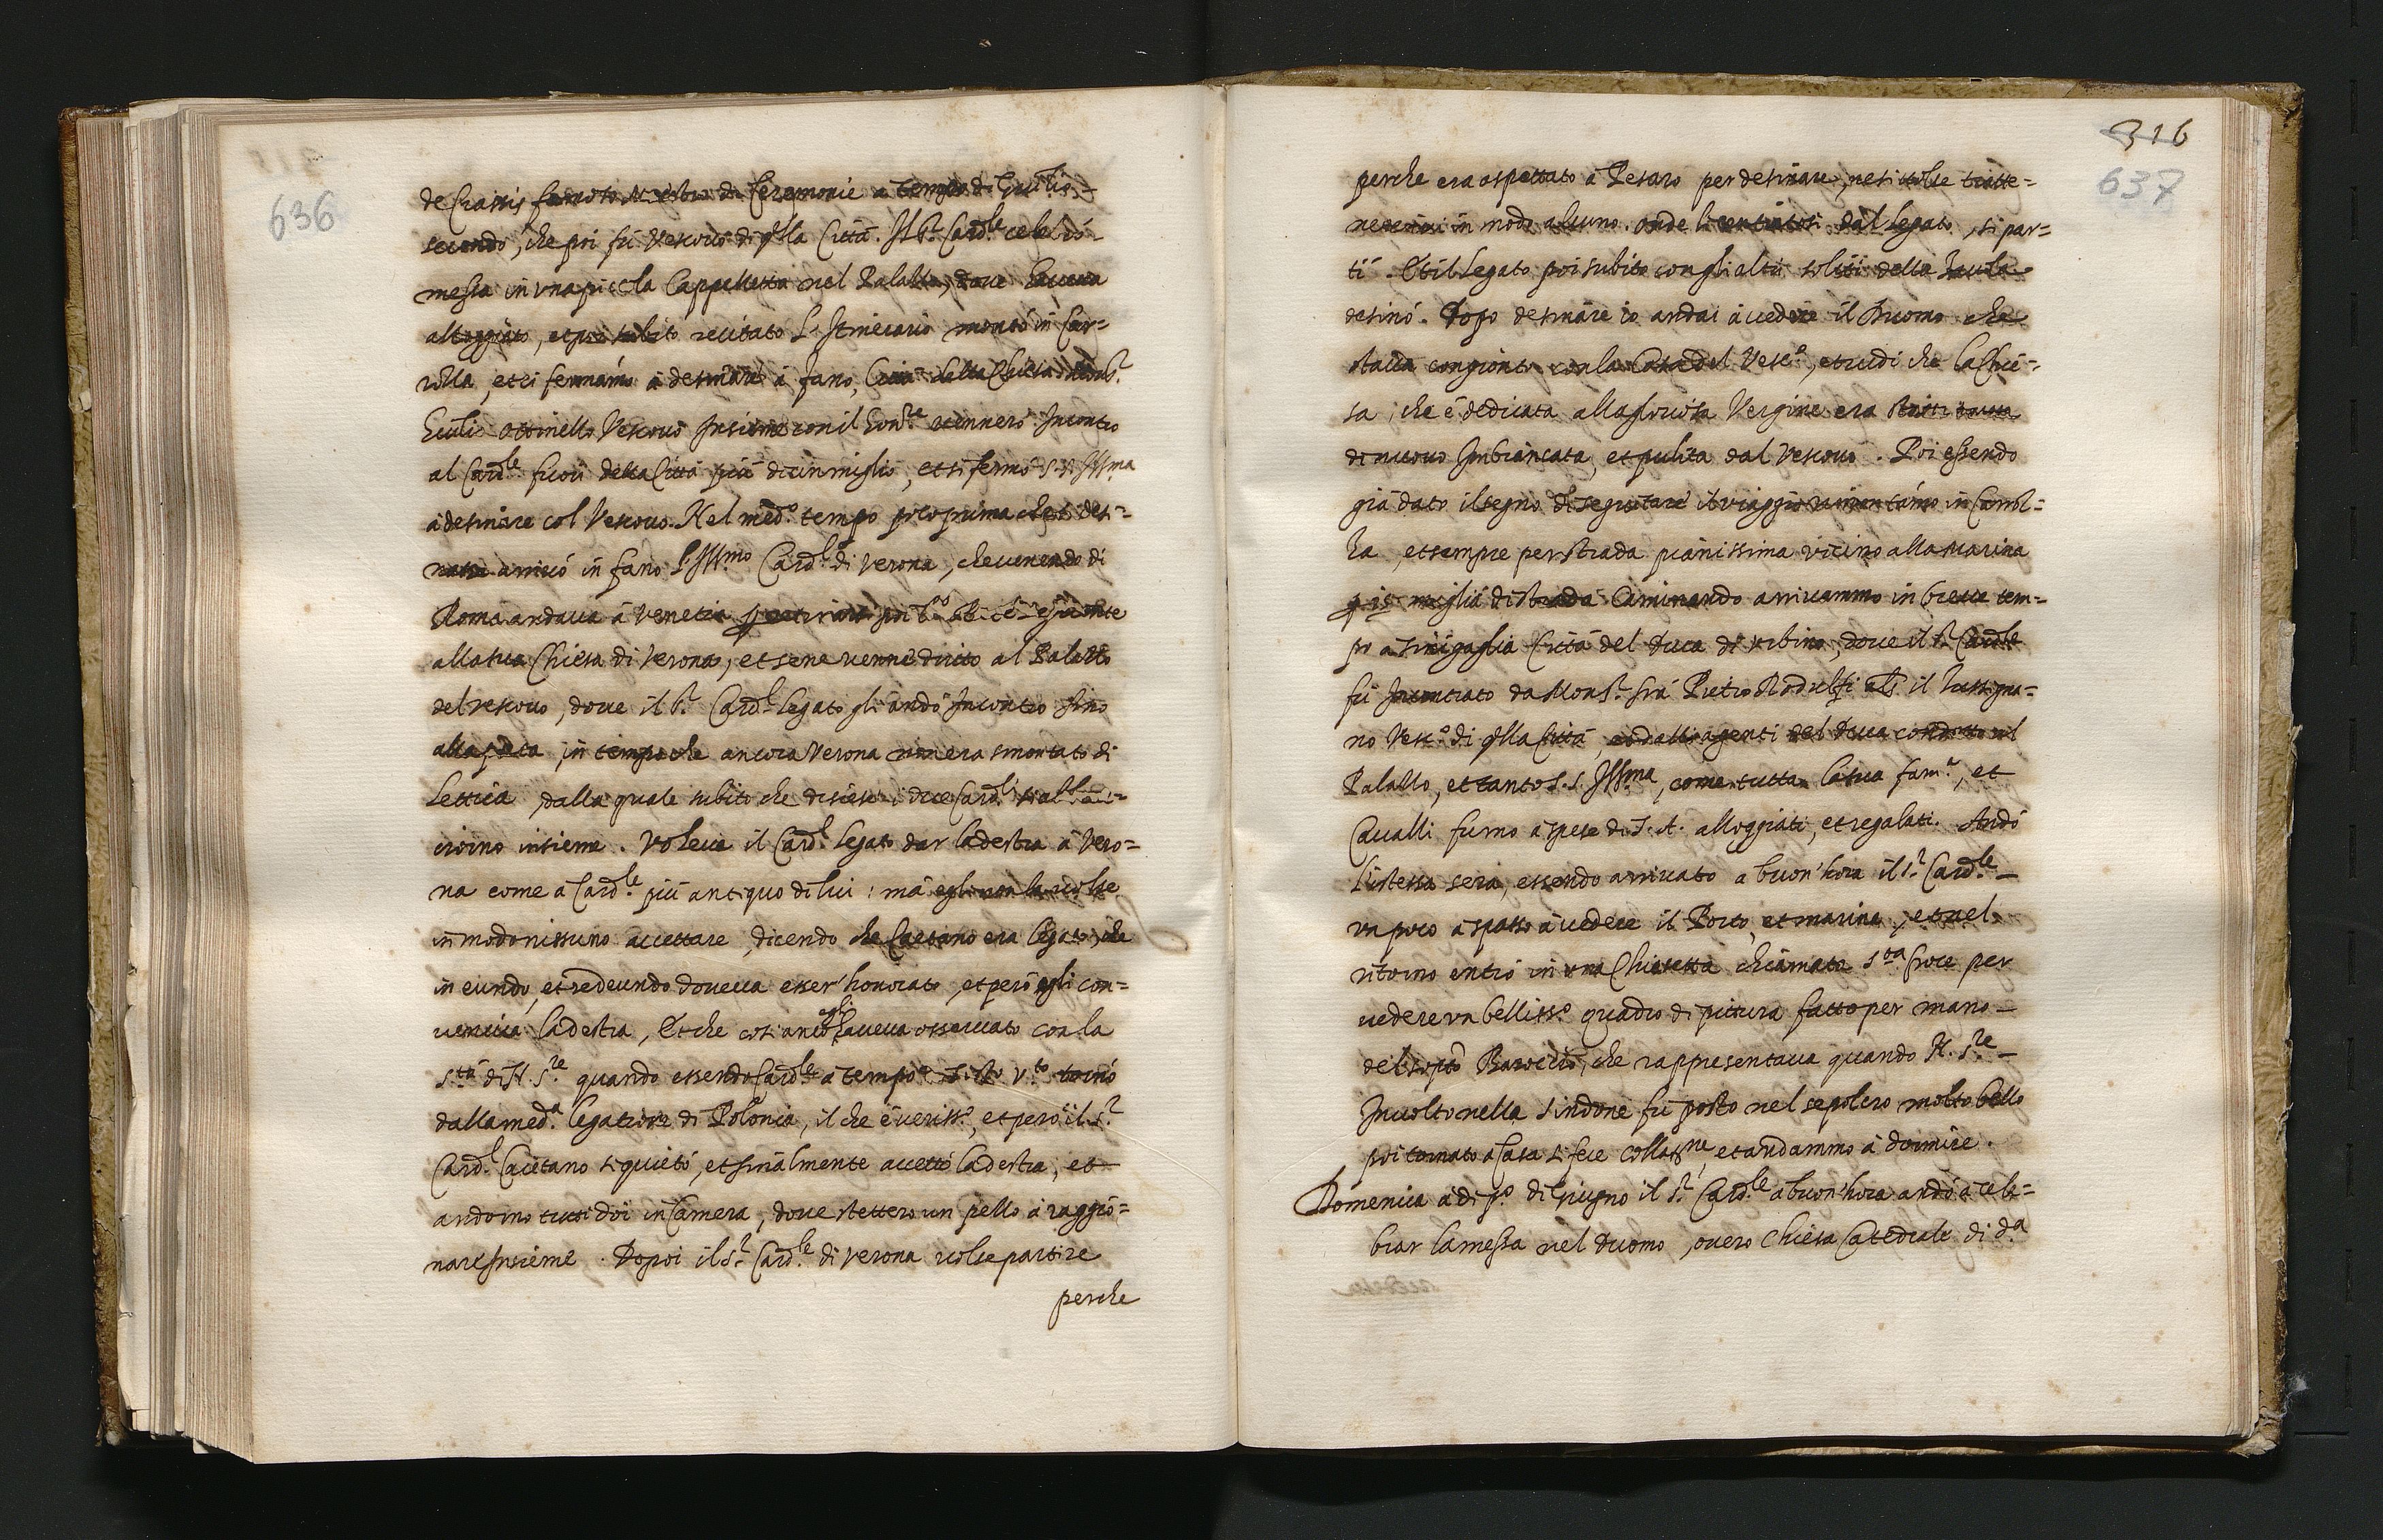 636
de Crassis famoso Mastro di Ceremonie a tempo di Giulio =
secondo, che poi fù Vescovo di qlla Città. Il S.r Card.le celebrò
messa in una piccola Cappelletta nel Palazzo, dove haveva
alloggiato, et poi subito recitato l'Itinerario montò in Car=
rozza, et ci fermàmo à desinare à fano, Città della Chiesa. Mons.r
Giulio Ottinelli Vescovo Insieme con il Gov.re vennero Incontro
al Card.le fuori della Città più di un miglio, et si fermò S. S. Ill.ma
à desinare col Vescovo. Nel med.o tempo poco prima che si desi=
nasse arrivò in fano l'Ill.mo Card.l di Verona, che venendo di
Roma andava à Venetia
alla sua Chiesa di Verona, et se ne venne diritto al Palazzo
del vescovo, dove il S.r Card.l legato gli andò Incontro sino
alla porta, in tempo che ancora Verona non era smontato di
Lettica, dalla quale subito che discese i due Card.li si abbrac=
ciorno insieme. Voleva il Card.l legato dar la destra à Vero=
na come à Card.le più antiquo di lui: mà egli non la volse
in modo nissuno accettare, dicendo che Caetano era legato, che
in eundo, et redeundo doveva esser honorato, et però egli con=
veniva la destra, Et che così anco egli haveva osservato con la
S.tà di N. S.re quando essendo Card.le à tempo di Sisto V.to tornò
dalla med.a legatione di Polonia, il che è veriss.o, et però il S.r
Card.l Caetano si quietò, et finalmente accettò la destra, et
andorno tutti doi in Camera, dove stettero un pezzo à raggio=
nare Insieme. Dopoi il S.r Card.le di Verona volse partire
perche
316
637
perche era aspettato à Pesaro per desinare, ne si volse tratte=
nere in modo alcuno. Onde licentiatosi dal legato, si par=
tì. Et il legato poi subito con gli altri soliti della tavola
desinò. Dopo desinare io andai à vedere il Duomo che
stava congionto con la Casa del Vesc.o, et vidi che la Chie=
sa, che è dedicata alla gloriosa Vergine era stata tutta
di nuovo Imbiancata, et pulita dal Vescovo. Poi essendo
già dato il segno di seguitare il viaggio rimontàmo in Carroz=
za, et sempre per strada pianissima vicino alla marina
p 15 miglia di strada Caminando arrivammo in breve tem=
po à Sinigaglia Città del Duca di Urbino, dove il S.r Card.le
fù Incontrato da Mons.r frà Pietro Rodulfi als il Tussigna=
no Vesc.o di qlla Città, et dalli agenti del Duca condotto al
Palazzo, et tanto S. S. Ill.ma, come tutta la sua fam.a, et
Cavalli furno à spese di S. A. alloggiati, et regalati. Andò
l'istessa sera, essendo arrivato a buon'hora il S.r Card.le
un poco à spasso à vedere il Porto, et marina, et nel
ritorno entrò in una Chiesetta chiamata S.ta Croce per
vedere un belliss.o quadro di pittura fatto per mano
del sopto Baroccio, che rappresentava quando N. S.re
Involto nella Sindone fù posto nel sepolcro molto bello
poi tornato à Casa si fece collatne, et andammo à dormire.
Domenica à di p.o di Giugno il S.r Card.le a buon'hora andò à cele=
brar la messa nel Duomo, overo Chiesa Catedrale di d.a